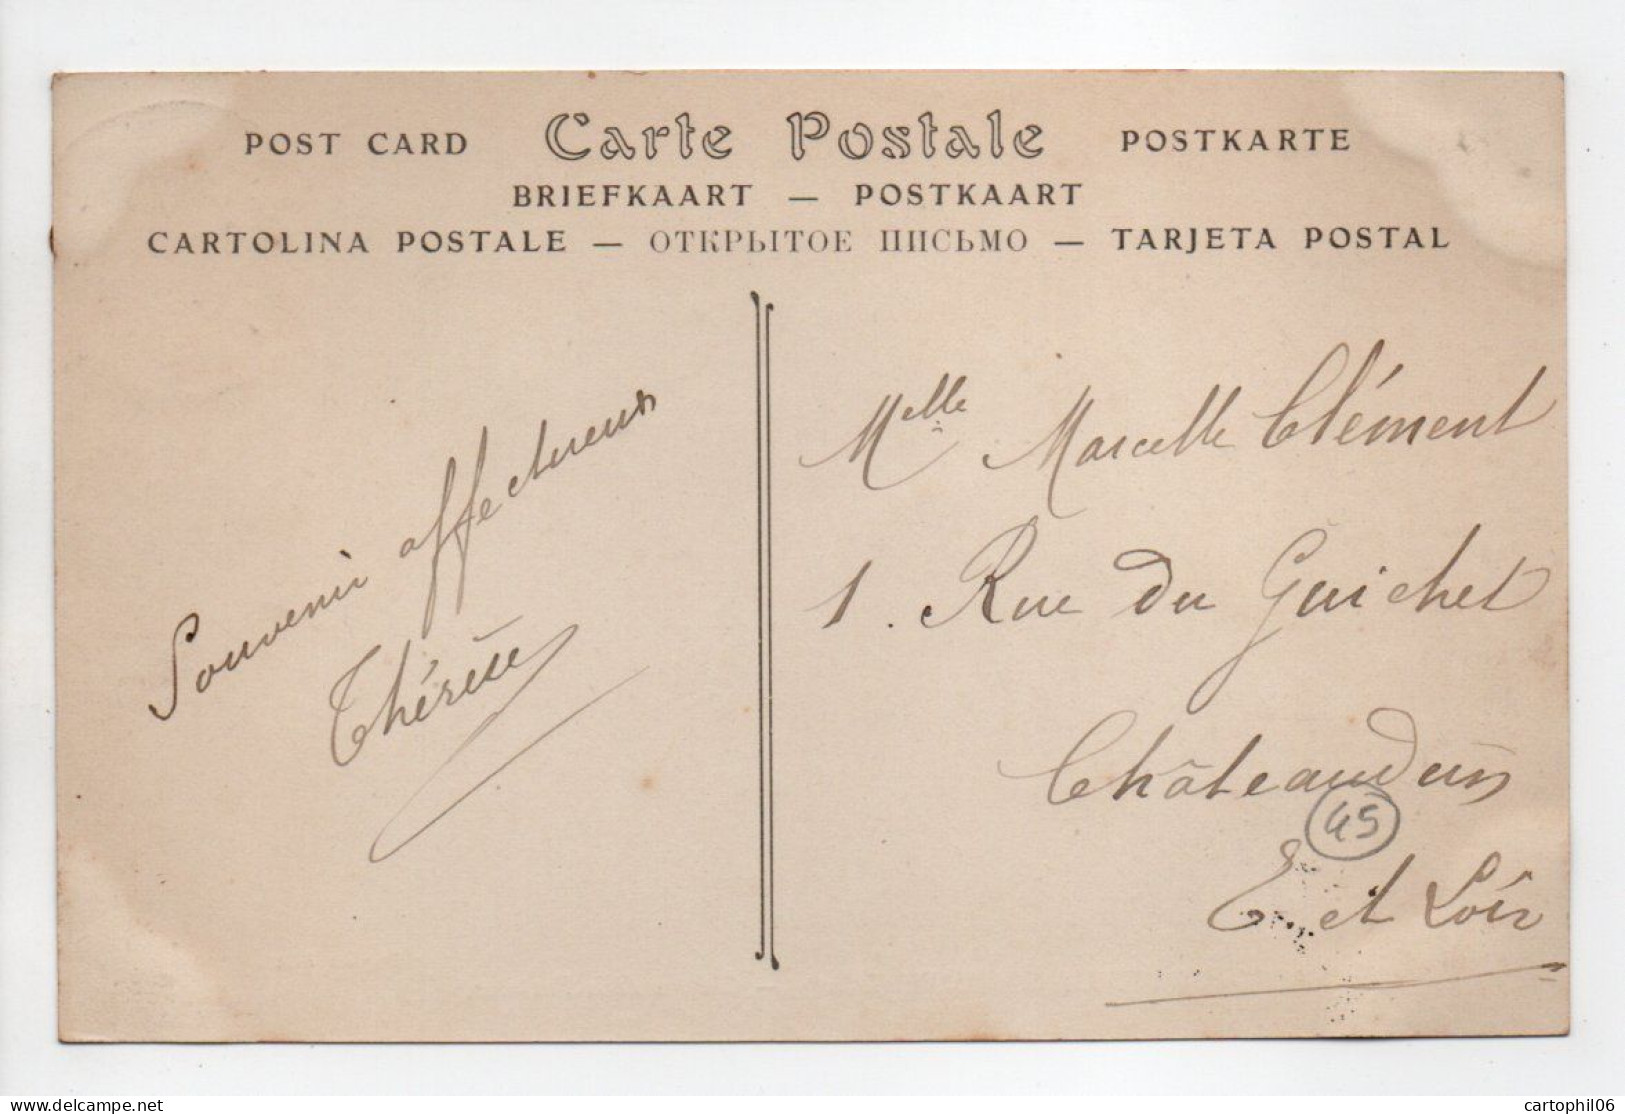 POST CARD Carte Postale POSTKARTE
BRIEFKAART — POSTKAART
CARTOLINA POSTALE — ОТКРЫТОЕ ПИСЬМО — TARJETA POSTAL
Souvenir affectueux
Thérèse
Melle Marcelle Clément
1. Rue du Guichet
Châteaudun
45
E. et Loir
www.delcampe.net
cartophil06